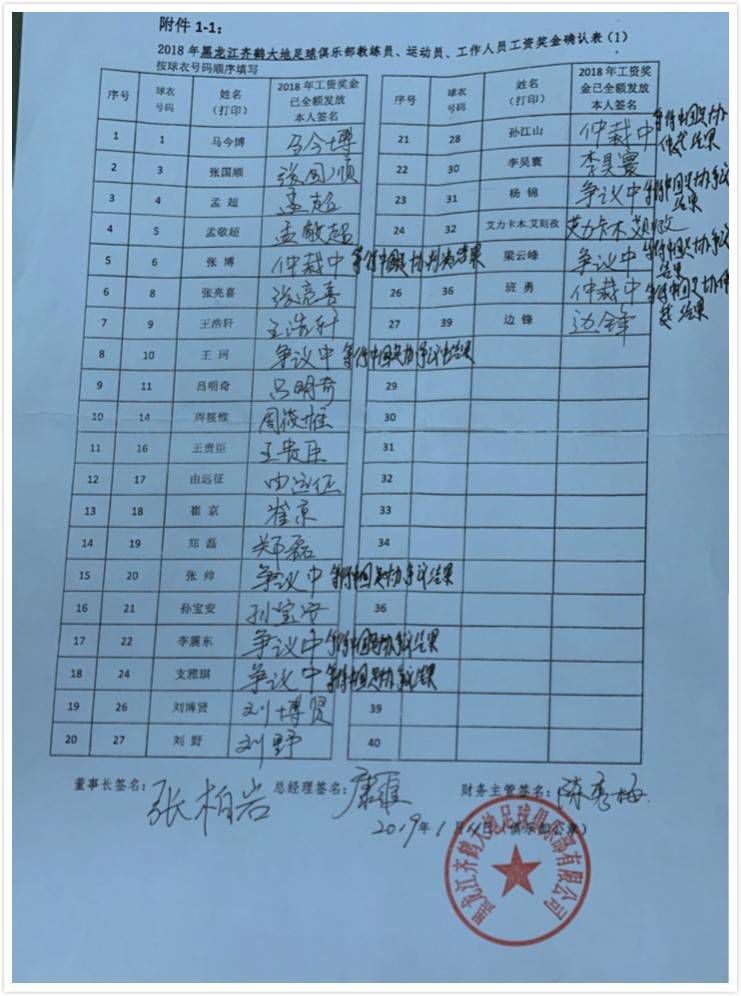 附件 1-1:
2018 年黑龙江齐鹤大地足球俱乐部教练员、运动员、工作人员工资奖金确认表（1）
按球衣号码顺序填写
序号 球衣号码 姓名（打印） 2018 年工资奖金已全额发放本人签名
1 1 马今博 马今博
2 3 张国顺 张国顺
3 4 孟超 孟超
4 5 孟敬超 孟敬超
5 6 张博 仲裁中 等待中国足协判决结果
6 8 张亮喜 张亮喜
7 9 王浩轩 王浩轩
8 10 王珂 争议中 等待中国足协争议结果
9 11 吕明奇 吕明奇
10 14 周筱惟
11 16 王贵臣 王贵臣
12 17 由远征 由远征
13 18 崔京 崔京
14 19 郑磊 郑磊
15 20 张帅 争议中 等待中国足协争议结果
16 21 孙宝安 孙宝安
17 22 李震东 争议中 等待中国足协争议结果
18 24 支雅琪 争议中 等待中国足协争议结果
19 26 刘博贤 刘博贤
20 27 刘野 刘野
序号 球衣号码 姓名（打印） 2018 年工资奖金已全额发放本人签名
21 28 孙江山 仲裁中 等待中国足协仲裁结果
22 30 李昊寰 李昊寰
23 31 杨锦 争议中 等待中国足协争议结果
24 32 艾力卡木.艾则孜
梁云峰 争议中 等待中国足协争议结果
26 36 班勇 仲裁中 等待中国足协仲裁结果
27 39 边锋 边锋
29
30
31
32
33
34
36
39
40
董事长签名： 张柏岩 总经理签名： 财务主管签名： 陈秀梅
2019年1月11日（俱乐部公章）
黑龙江齐鹤大地足球俱乐部有限公司